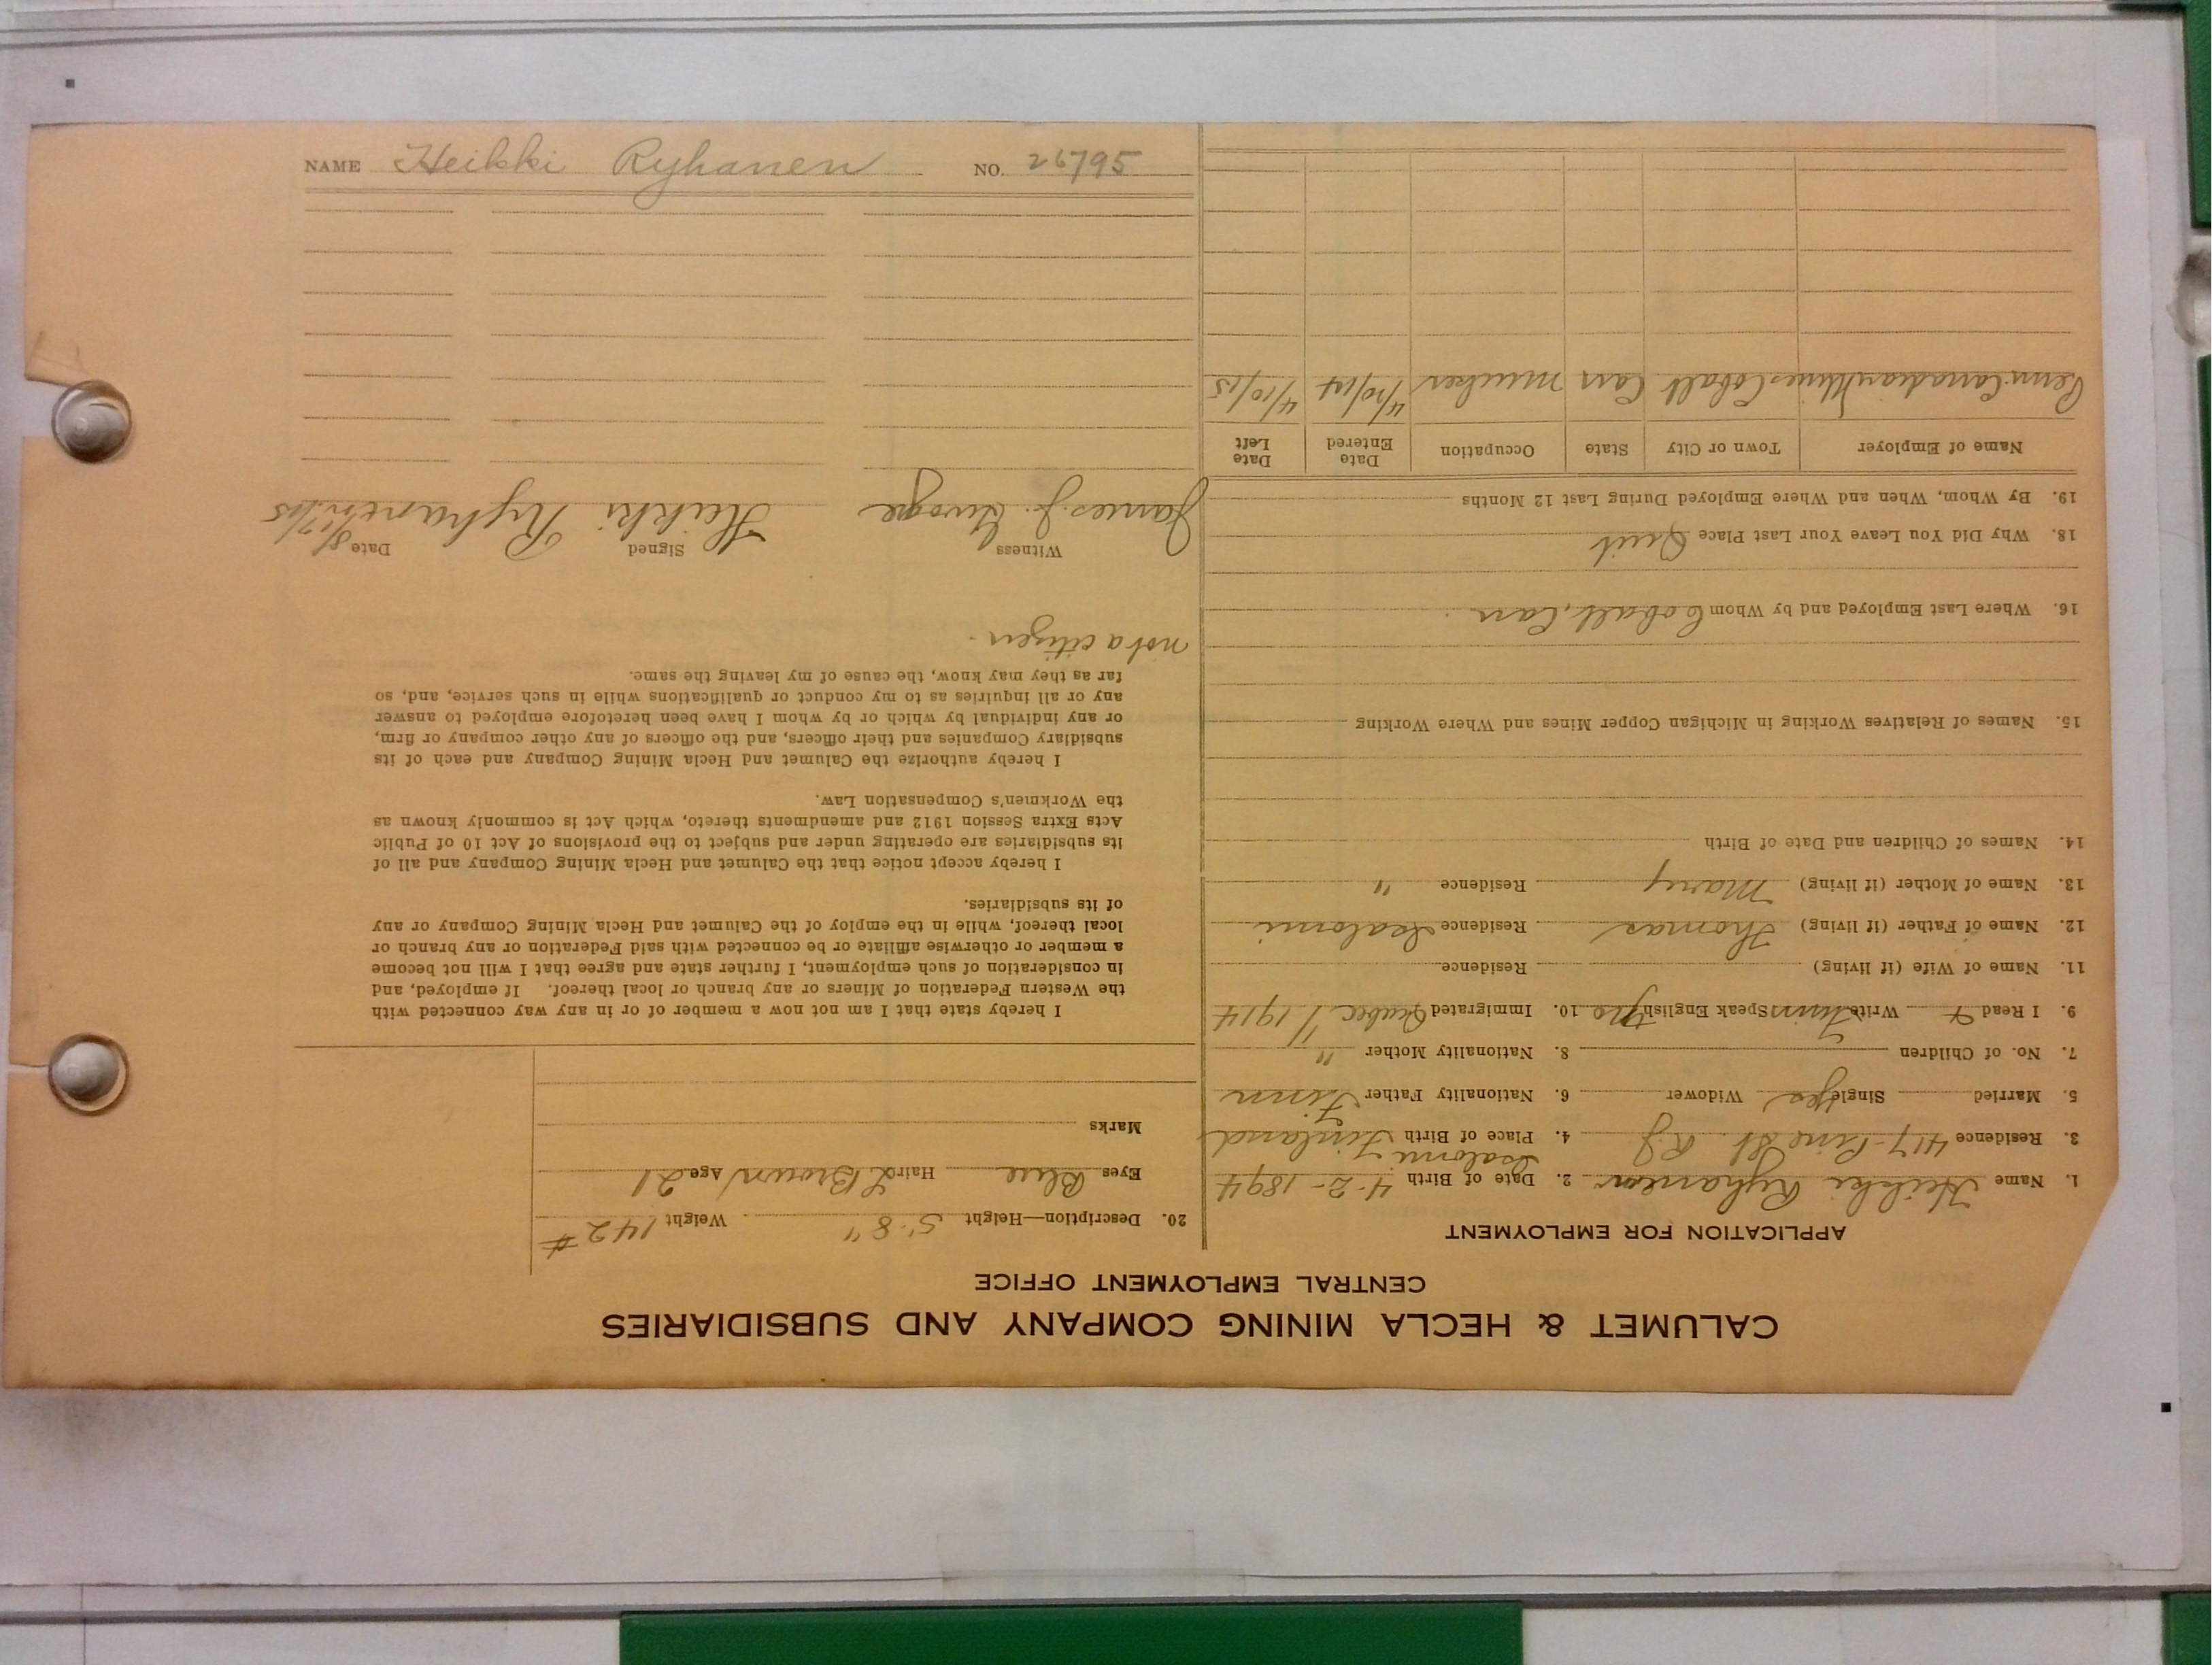 CALUMET & HECLA MINING COMPANY AND SUBSIDIARIES
CENTRAL EMPLOYMENT OFFICE
APPLICATION FOR EMPLOYMENT
1. Name Heikki Ryhanen 2. Date of Birth 4-2-1894
3. Residence 417-Pine St. RJ 4. Place of Birth Iisalmi Finland
5. Married Single Yes Widower 6. Nationality Father Finn
7. No. of Children 8. Nationality Mother "
9. I Read & Write Finn Speak English no 10. Immigrated Quebec 1914
11. Name of Wife (if living) Residence
12. Name of Father (if living) Thomas Residence
13. Name of Mother (if living) Mary Residence "
14. Names of Children and Date of Birth
15. Names of Relatives Working in Michigan Copper Mines and Where Working
16. Where Last Employed and by Whom Cobalt, Can
18. Why Did You Leave Your Last Place Quit
19. By Whom, When and Where Employed During Last 12 Months
Name of Employer Town or City State Occupation Date Entered Date Left
Penn Canadian Mines Cobalt Can mucker 4/10/14 4/10/15
20. Description—Height 5'-8" Weight 142#
Eyes Blue Hair L Brown Age 21
Marks
I hereby state that I am not now a member of or in any way connected with
the Western Federation of Miners or any branch or local thereof. If employed, and
in consideration of such employment, I further state and agree that I will not become
a member or otherwise affiliate or be connected with said Federation or any branch or
local thereof, while in the employ of the Calumet and Hecla Mining Company or any
of its subsidiaries.
I hereby accept notice that the Calumet and Hecla Mining Company and all of
its subsidiaries are operating under and subject to the provisions of Act 10 of Public
Acts Extra Session 1912 and amendments thereto, which Act is commonly known as
the Workmen's Compensation Law.
I hereby authorize the Calumet and Hecla Mining Company and each of its
subsidiary Companies and their officers, and the officers of any other company or firm,
or any individual by which or by whom I have been heretofore employed to answer
any or all inquiries as to my conduct or qualifications while in such service, and, so
far as they may know, the cause of my leaving the same.
not a citizen.
Witness Signed Date
James J. Heikki Ryhanen
NAME Heikki Ryhanen NO. 26795